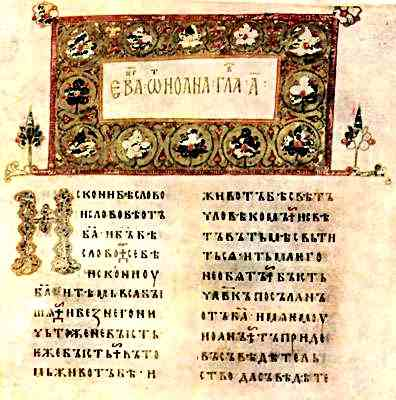 ЄВА ѿ ИОАНА · ГЛА · А҃ ·
ИСКОНИБѢСЛОВО
ИСЛОВОБѢОТЪ
Б҃А · ИБ҃ЪБѢ
СЛОВО ⁘ СЕБѢ
ИСКОНИОУ
Б҃А · ИТѢМЬВСꙖБꙐ
ШѦ · ИБЕЗНЕГОНИ
ЧЬТОЖЕНЕБꙐСТЬ
ИЖЕБꙐСТЬ ⁘ ВЪТО
МЬЖИВОТЪБѢ · И
ЖИВОТЪБѢСВѢТЪ
ЧЛОВѢКОМЪ ⁘ ИСВѢ
ТЪВЪТЬМѢСВЬТИ
ТЬСѦ · ИТЬМАѤГО
НЕОБѦТЪ ⁘ БꙐСТЬ
ЧЛ҃ВКЪПОСЪЛАНЪ
ОТЪБ҃А · ИМѦѤМОУ
ИОАНЪ ⁘ ТЪПРИДЕ
ВЪСЪВѢДѢТЕЛЬ
СТВОДАСЪВѢДѢТЕ